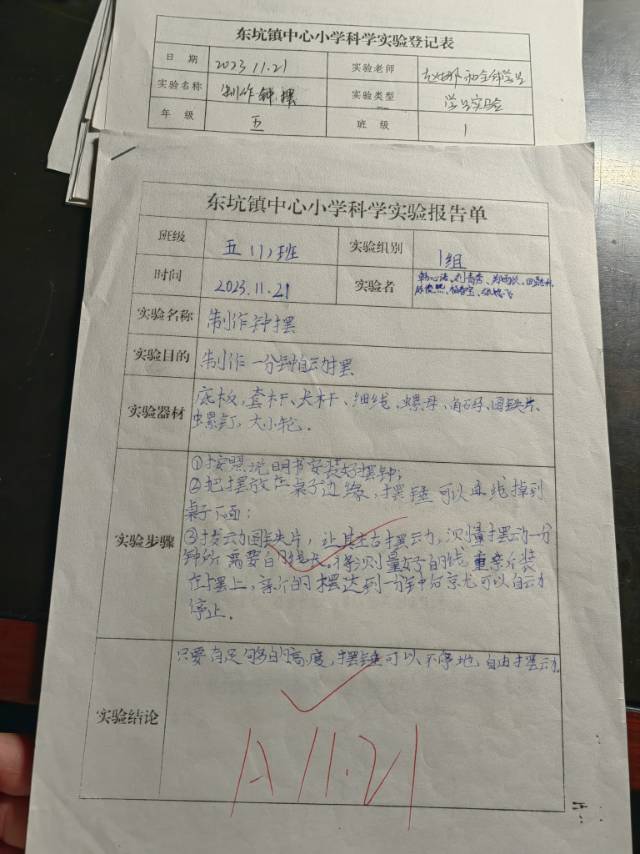 东坑镇中心小学科学实验登记表
日 期 2023 11.21 实验老师
实验名称 制作钟摆 实验类型 学生实验
年 级 五 班 级 1
东坑镇中心小学科学实验报告单
班级 五(1)班 实验组别 1组
时间 2023.11.21 实验者
实验名称 制作钟摆
实验目的 制作一分钟自动摆
实验器材 底板、套杆、大杆、细线、螺母、角码、圆铁片、
螺钉、大小轮.
实验步骤 ①按照说明书安装好摆钟;
②把摆放在桌子边缘,摆锤可以垂线掉到
桌子下面;
③拨动圆铁片,让其左右摆动,测量摆动一分
钟所需要的线长。将测量好的线重新装
在摆上,新的摆达到一分钟后就可以自动
停止.
实验结论 只要有足够的高度,摆锤可以不停地自由摆动.
A 11.21